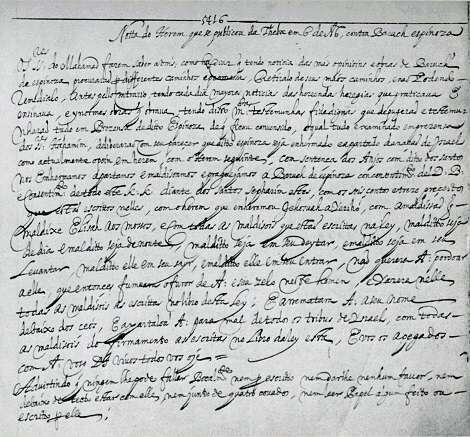 5416
Notta do Herem que se publicou da Theba em 6 de Ab, contra Baruch espinoza
Os SSres do Mahamad fazem saber a Vms como a dias q tendo noticia das mas opinioins e obras de Baruch
de espinoza procurarao p differentes caminhos e promessas Retiralo de seus máos caminhos, e nao Podendo
Remedialo, antes pello contrario, tendo cada dia mayores noticias das horrendas heregias que praticava e
ensinava, e ynormes obras q obrava, tendo disto mtas testemunhas fidedignas que depugerao e testemunharao tudo em Prezensa de ditto Espinoza, de q ficou convensido, o qual tudo examinado em prezensa
dos SSres Hahamim, deliberarao com seu parecer que ditto espinoza seja enhermado e apartado da nação de Israel
como actualmente o poin em herem, com o Herem seguinte; Com sentença dos Anjos, com ditto dos santos
nos Enhermamos, apartamos e maldisoamos e praguejamos a Baruch de espinoza com consentimto del D. B.
e consentimto de todo este K. K. diante dos santos Sepharim estes, com os seis centos e treze preceitos
que estaõ escrittos nelles, com o herem que enheremou Yehosuah a Yeriho, com a maldissaõ q
maldixe Elisah aos mossos, e com todas as maldisois que estaõ escrittas na Ley, malditto seja
de dia e malditto seja de noute, malditto seja em seu deytar, e malditto seja em seu
Levantar, malditto elle em seu sayr, e malditto elle em seu entrar, não queira A. perdoar
a elle, que entonces fumeara o furor de A. e seu zelo neste homem, e yazera nelle
todas as maldisois as escrittas no libro desta Ley; E arrematará A. a seu nome
debaixo dos ceos, E apartaloa A. para mal de todos os tribus de Israel, com todas
as maldisois do firmamento as escrittas no Libro da ley esta, E vos os apegados
com A. vos Dº vivos todos vos oje
Advirtindo q ninguem lhe pode fallar Bocalmte nem p escritto nem dar lhe nenhum favor, nem
debaixo de tecto estar com elle, nem junto de quatro covados, nem leer Papel algum feito ou
escritto p elle;